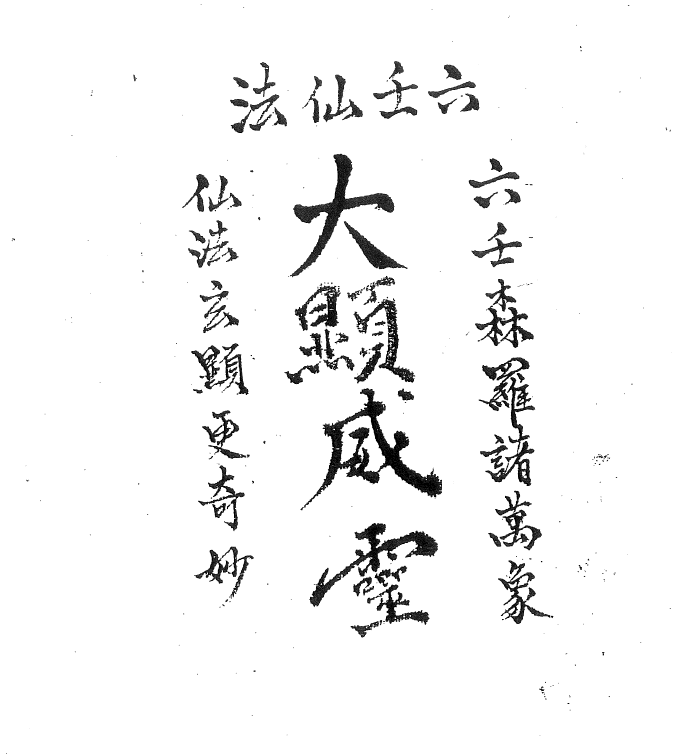 六壬仙法
六壬森羅諸萬象
大顯威靈
仙法玄顯更奇妙